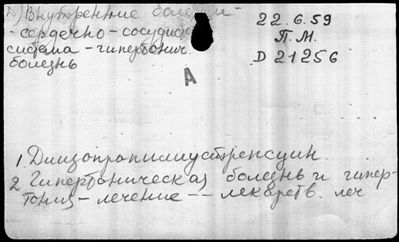 2) Внутренние болезни -
22.6.59
- сердечно - сосудист.
П.М.
система - гипертонич.
D 21256
болезнь
А
1. 
2 Гипертоническая болезнь и гипер-
тония - лечение -- лекарств. леч